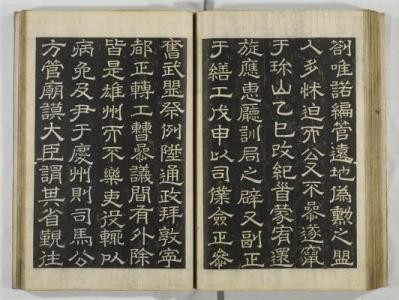 劄唯諾編管遠地偽勳之盟
人多怵迫而公又不參遂竄
于珎山乙巳改紀首蒙宥還
旋應惠廳訓局之辟又副正
于繕工戊申以司僕僉正參
奮武盟祭例陞通政拜敦寧
都正轉工曹參議間有外除
皆是雄州而不樂吏役輒以
病免及尹于慶州則司馬公
方管廟謨大臣謂其省覲往